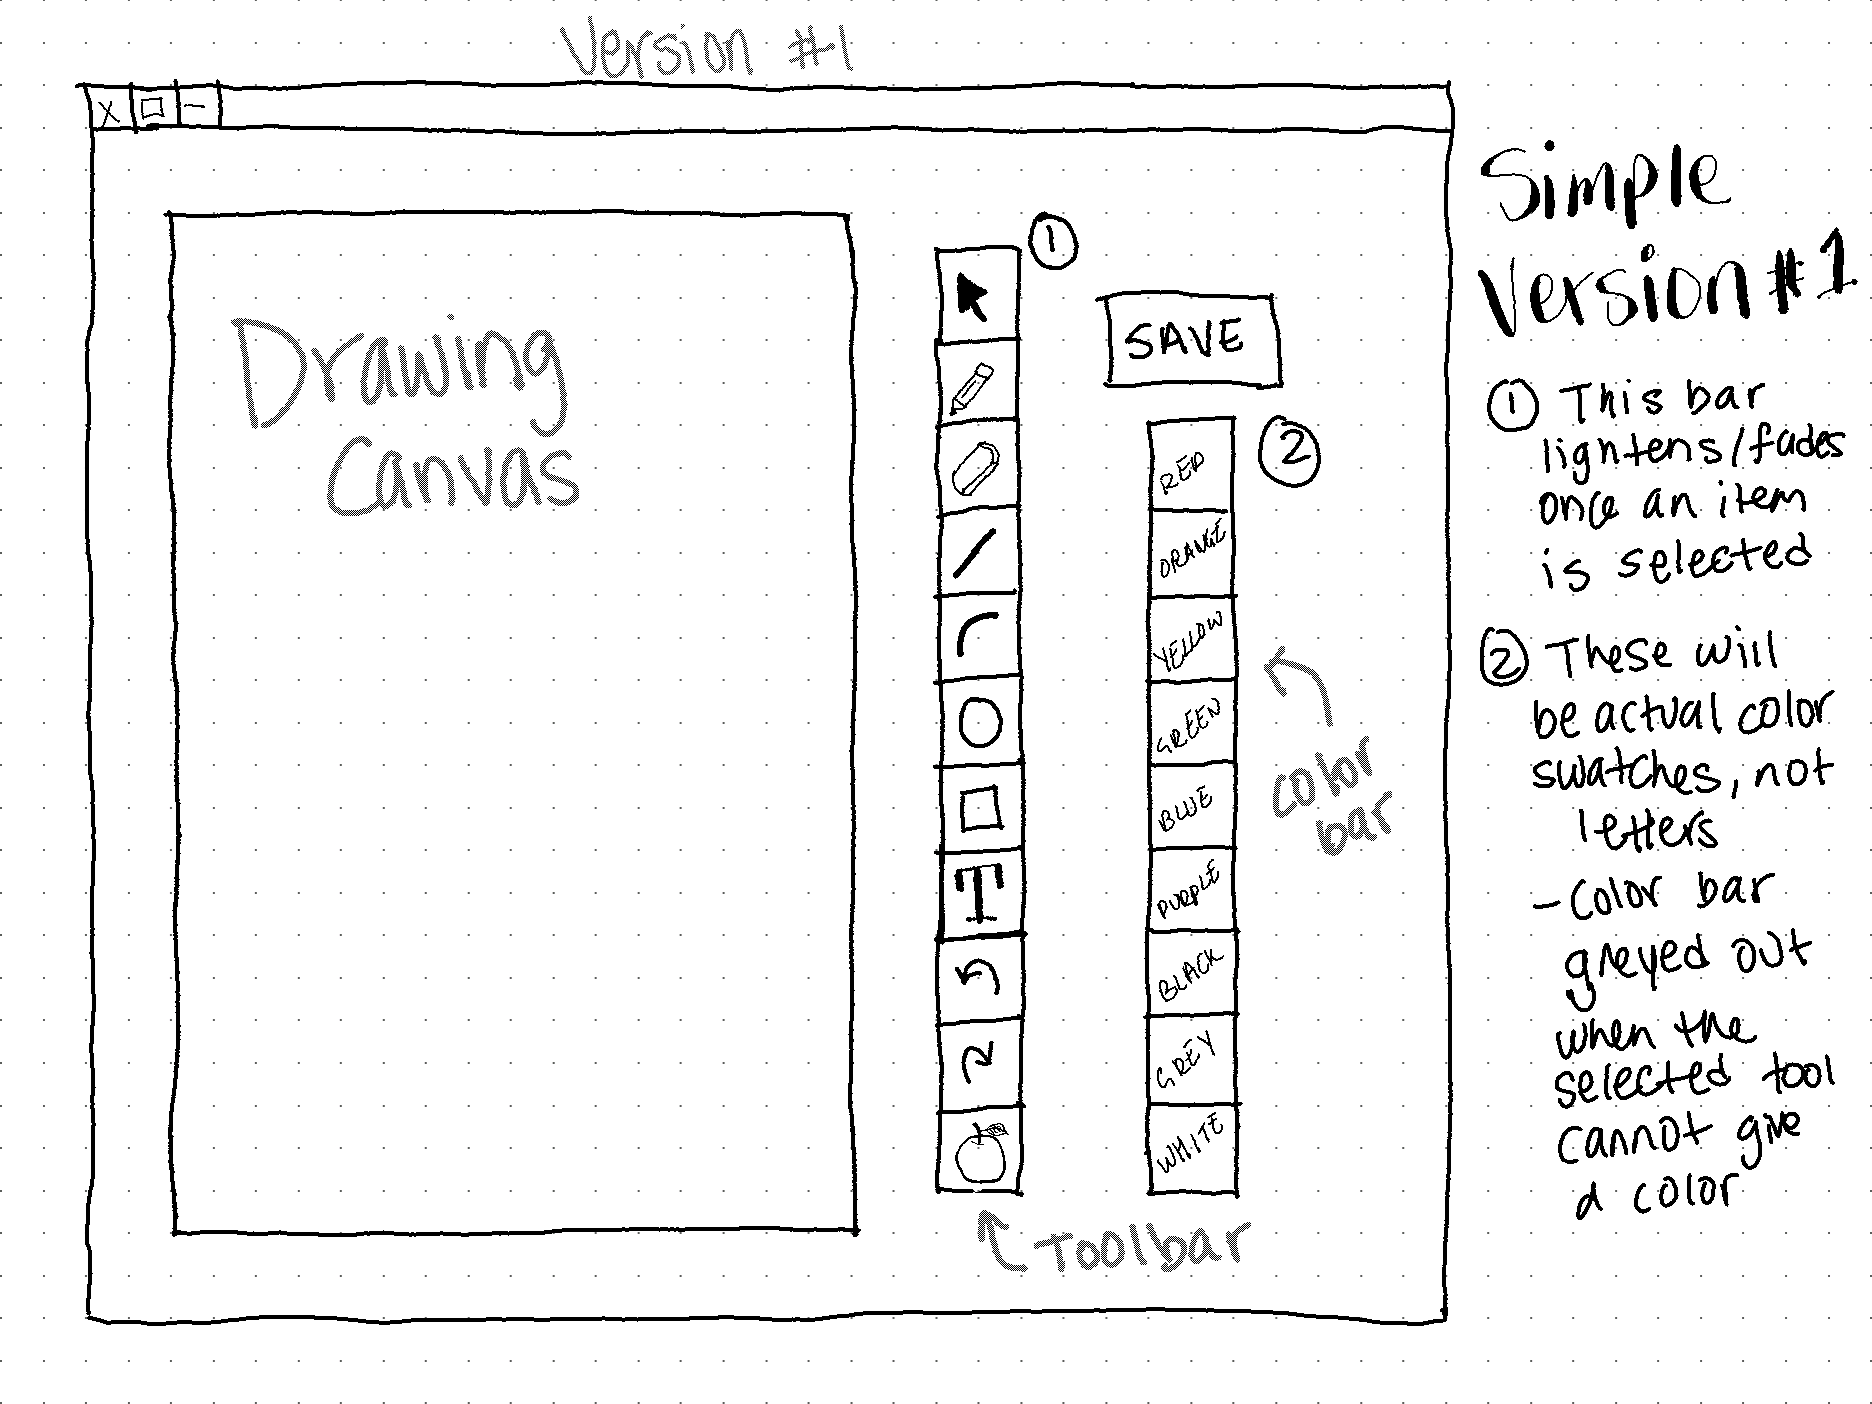 Version #1
X
Simple
Version #1
Drawing
Canvas
①
SAVE
②
RED
ORANGE
YELLOW
GREEN
BLUE
PURPLE
BLACK
GREY
WHITE
T
color
bar
Toolbar
① This bar
lightens/fades
once an item
is selected
② These will
be actual color
swatches, not
letters
- Color bar
greyed out
when the
selected tool
cannot give
a color